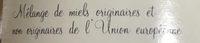 Mélange de miels originaires et
non originaires de l'Union européenne